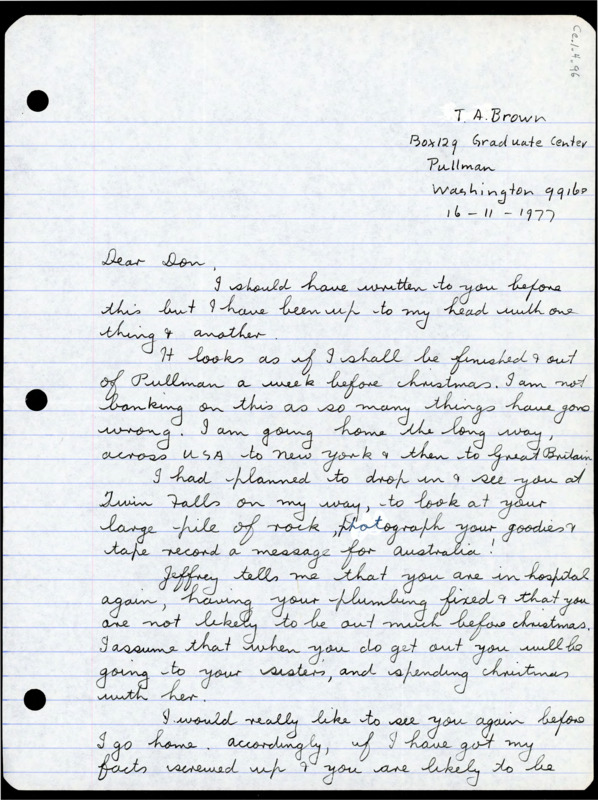 Ce.1.4.96
T. A. Brown
Box 129 Graduate Center
Pullman
Washington 99160
16 - 11 - 1977
Dear Don,
I should have written to you before
this but I have been up to my head with one
thing & another.
It looks as if I shall be finished & out
of Pullman a week before christmas. I am not
banking on this as so many things have gone
wrong. I am going home the long way,
across USA to New York & then to Great Britain
I had planned to drop in & see you at
Twin Falls on my way, to look at your
large pile of rock, photograph your goodies &
tape record a message for australia!
Jeffrey tells me that you are in hospital
again, having your plumbing fixed & that you
are not likely to be out much before christmas.
I assume that when you do get out you will be
going to your sisters, and spending christmas
with her.
I would really like to see you again before
I go home. accordingly, if I have got my
facts screwed up & you are likely to be